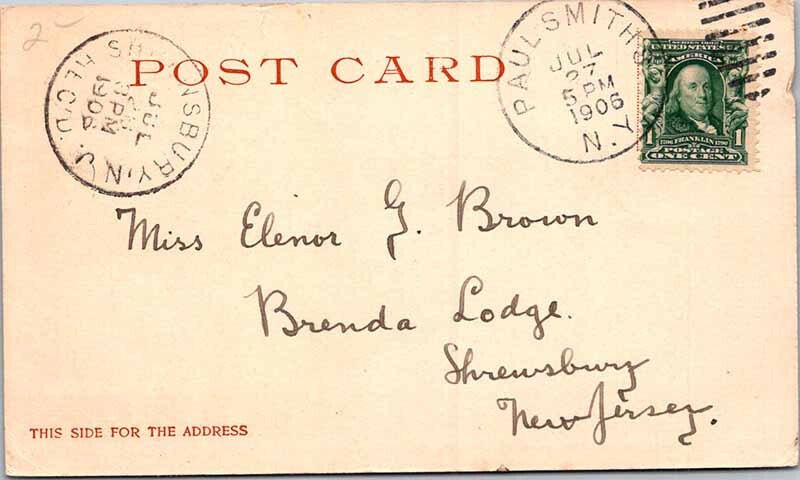 2
POST CARD
SHREWSBURY, N.J.
JUL
28
3 PM
1906
REC'D.
PAUL SMITH'S
JUL
27
5 PM
1906
N.Y.
SERIES 1902
UNITED STATES OF
AMERICA
1 1706 FRANKLIN 1790 1
POSTAGE
ONE CENT
Miss Elenor G. Brown
Brenda Lodge.
Shrewsbury
New Jersey.
THIS SIDE FOR THE ADDRESS